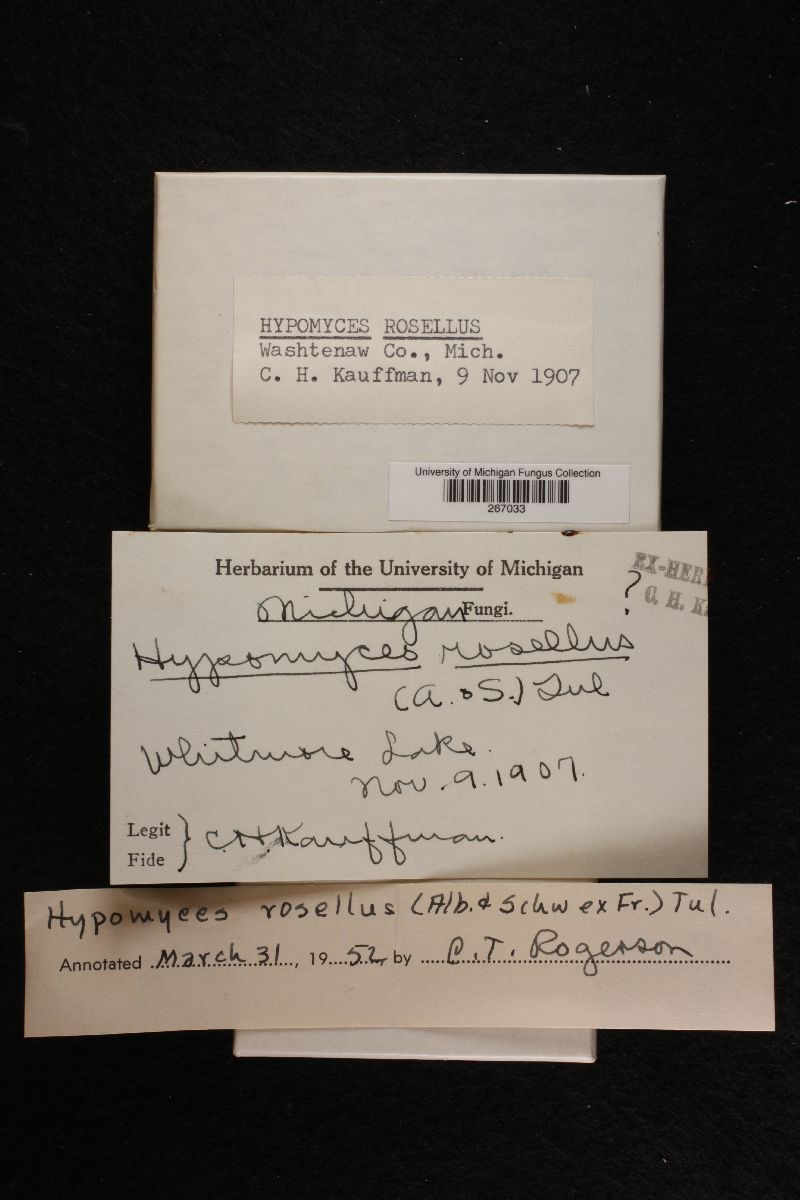 HYPOMYCES ROSELLUS
Washtenaw Co., Mich.
C. H. Kauffman, 9 Nov 1907
University of Michigan Fungus Collection
267033
Herbarium of the University of Michigan
EX-HER
C. H. K
Michigan Fungi.
?
Hypomyces rosellus
(A. & S.) Tul
Whitmore Lake.
Nov. 9. 1907.
Legit
Fide } C.H.Kauffman.
Hypomyces rosellus (Alb. & Schw ex Fr.) Tul.
Annotated March 31, 1952, by C. T. Rogerson